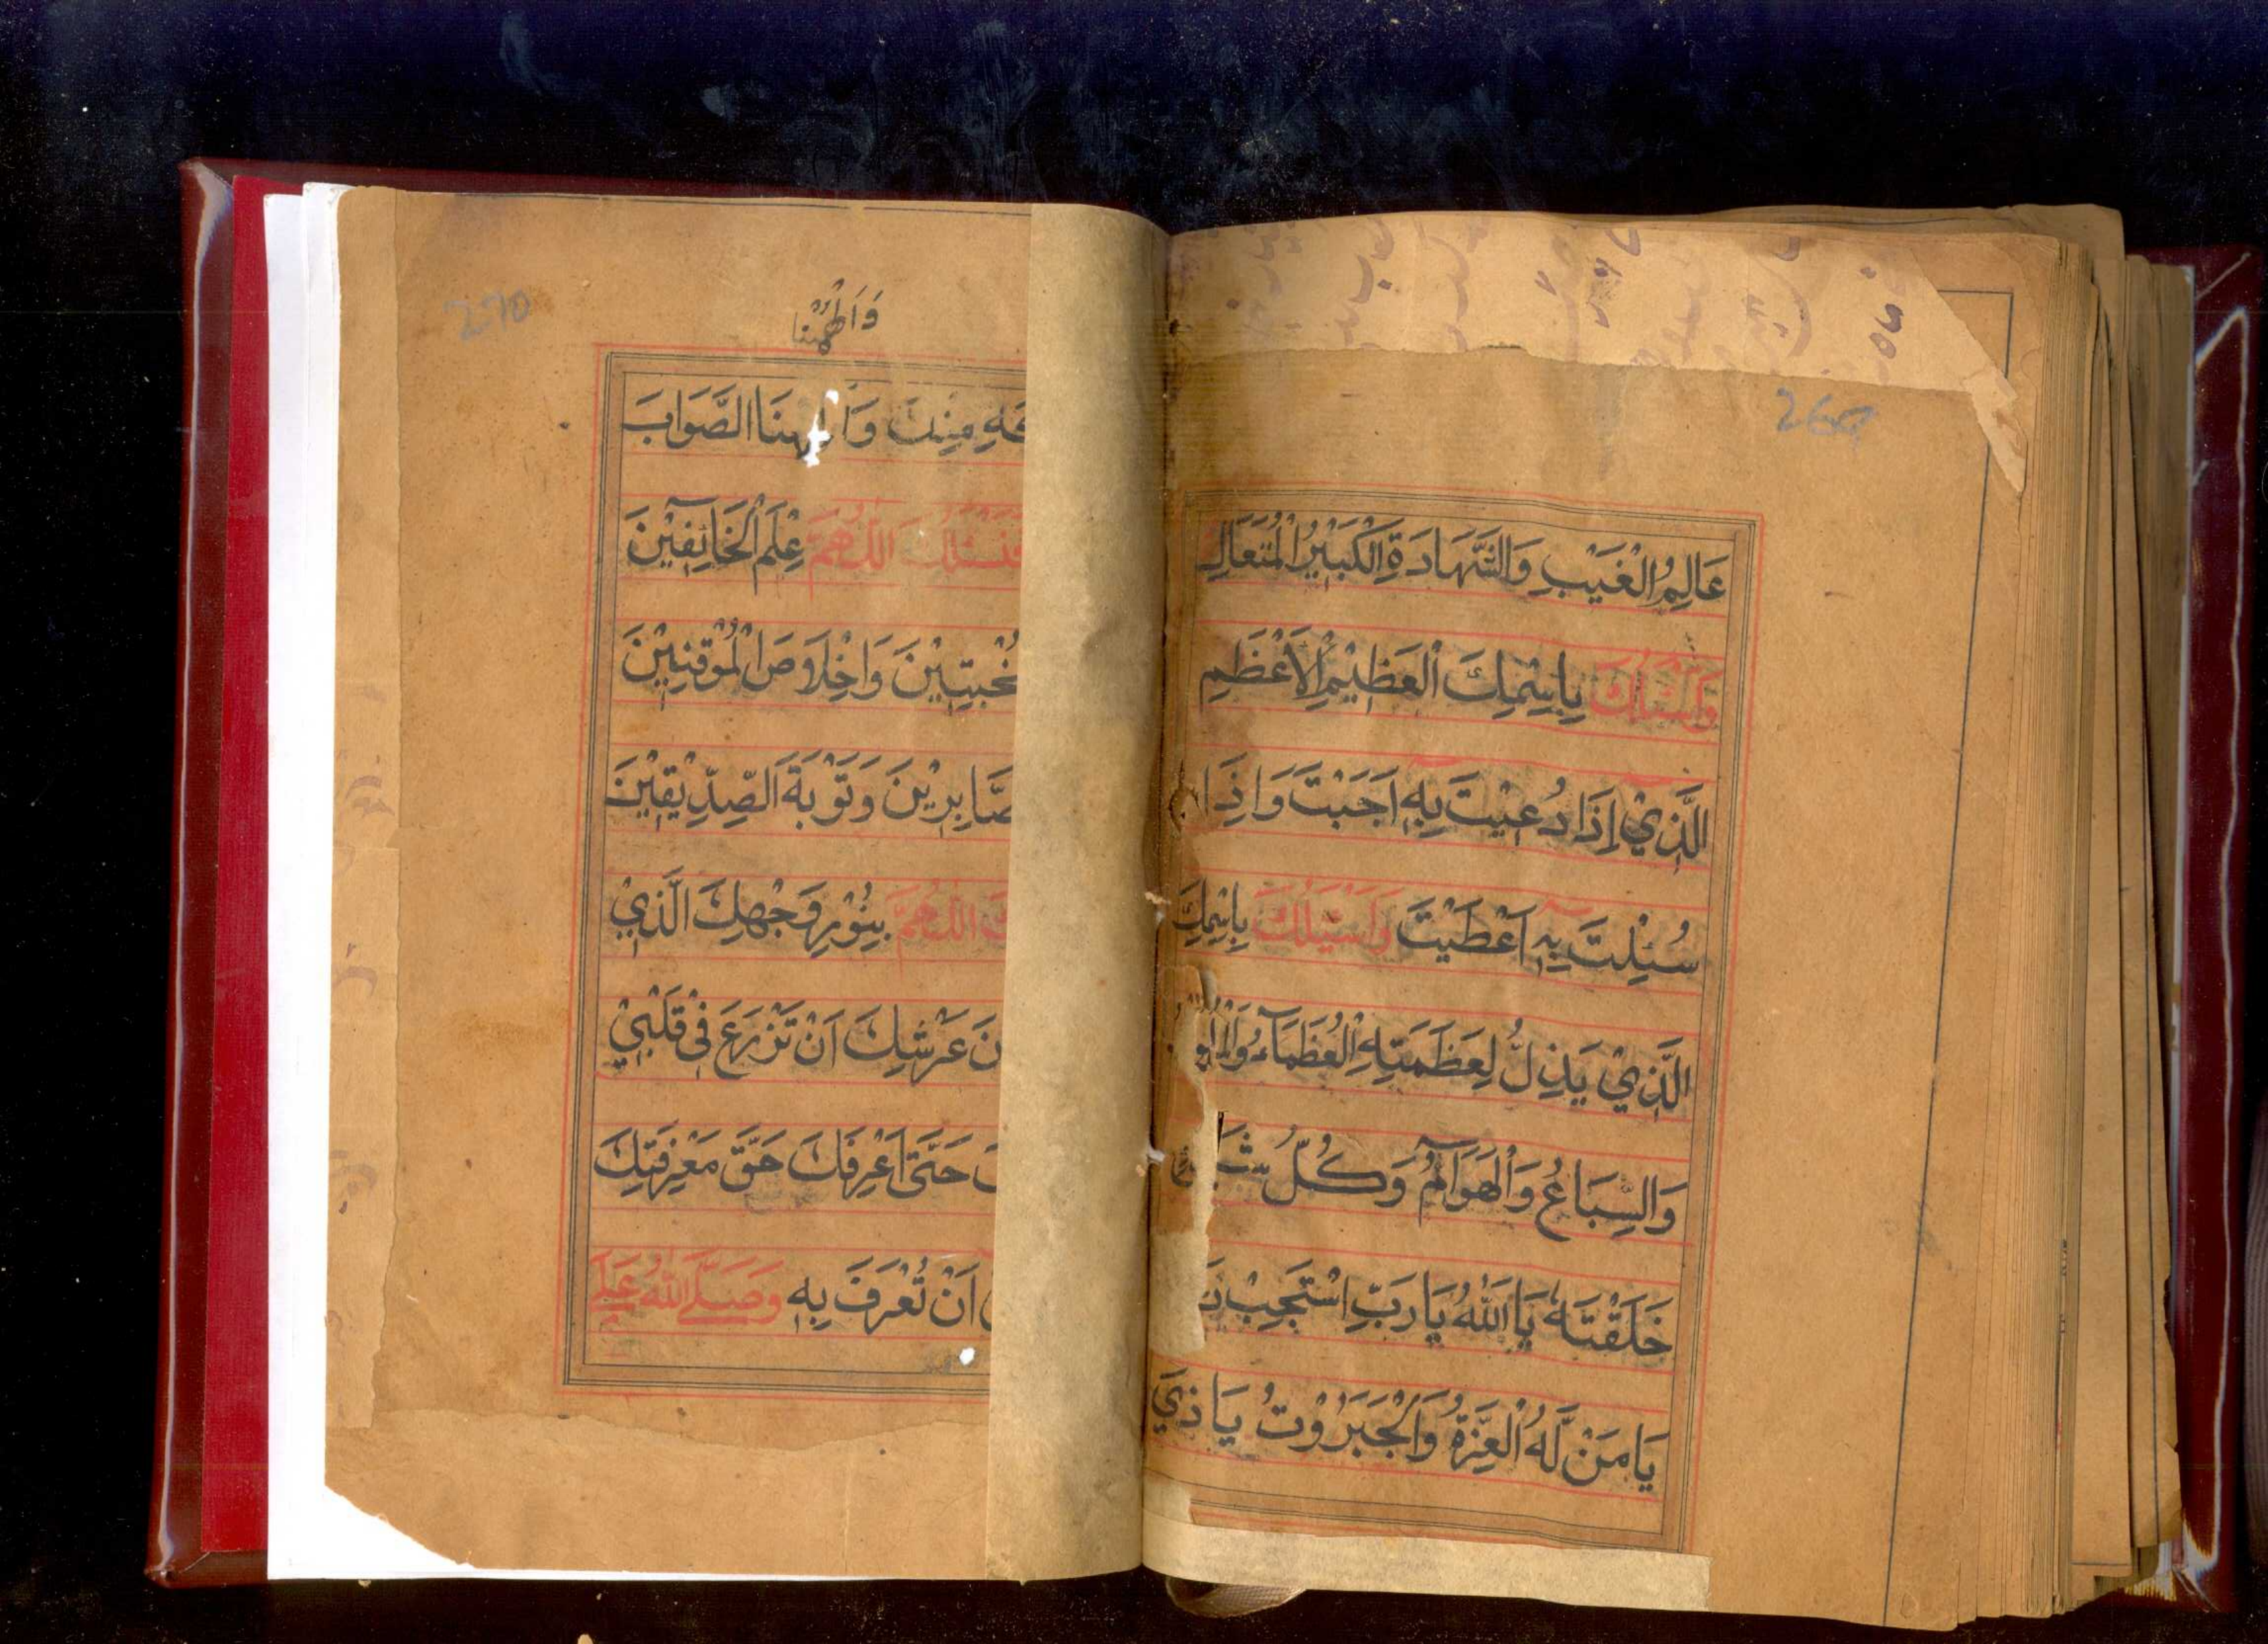 269
عَالِمُ الْغَيْبِ وَالشَّهَادَةِ الْكَبِيْرُ الْمُتَعَالِ
وَاَسْئَلُكَ بِاِسْمِكَ الْعَظِيْمِ الْاَعْظَمِ
الَّذِيْ اِذَا دُعِيْتَ بِهٖ اَجَبْتَ وَاِذَا
سُئِلْتَ بِهٖ اَعْطَيْتَ وَاَسْئَلُكَ بِاسْمِكَ
الَّذِيْ يَذِلُّ لِعَظَمَتِهِ الْعُظَمَآءُ
وَالسِّبَاعُ وَالْهَوَآمُّ وَكُلُّ
خَلَقْتَهٗ يَا اَللّٰهُ يَا رَبِّ اسْتَجِبْ
يَا مَنْ لَّهُ الْعِزَّةُ وَالْجَبَرُوْتُ يَا ذِيَ
270
وَاَلْهِمْنَا
مِنْكَ وَاَلْهِمْنَا الصَّوَابَ
نَسْئَلُكَ اللّٰهُمَّ عِلْمَ الْخَآئِفِيْنَ
وَاِخْلَاصَ الْمُوْقِنِيْنَ
وَتَوْبَةَ الصِّدِّيْقِيْنَ
اللّٰهُمَّ بِنُوْرِ وَجْهِكَ الَّذِيْ
عَرْشِكَ اَنْ تَزْرَعَ فِيْ قَلْبِيْ
حَتّٰى اَعْرِفَكَ حَقَّ مَعْرِفَتِكَ
اَنْ تُعْرَفَ بِهٖ وَصَلَّى اللّٰهُ عَلٰى